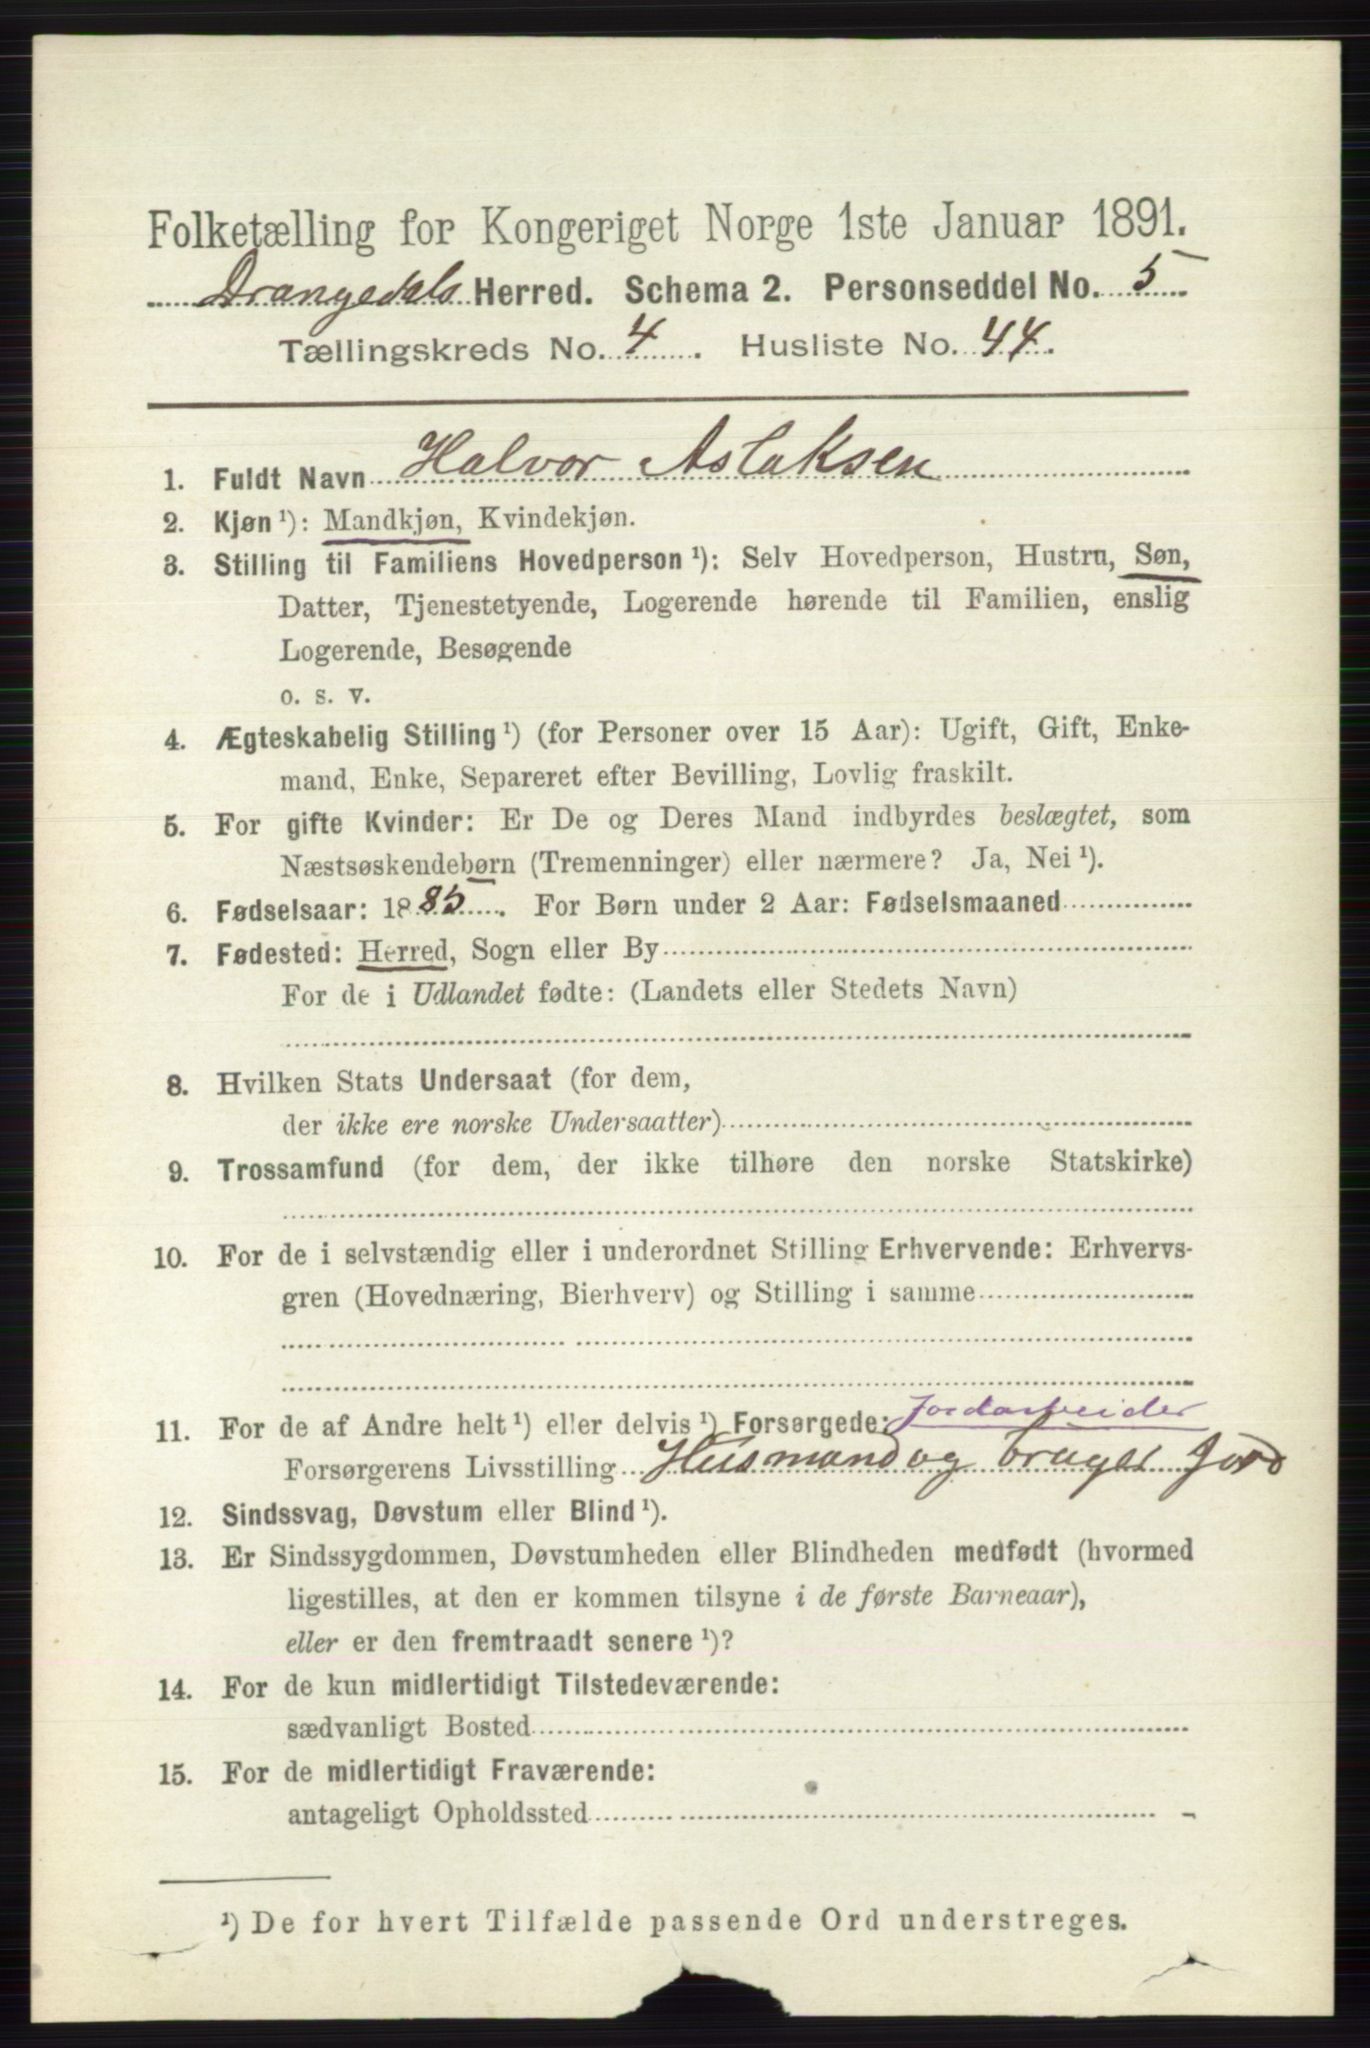 Folketælling for Kongeriget Norge 1ste Januar 1891.
Drangedals Herred. Schema 2. Personseddel No. 5
Tællingskreds No. 4. Husliste No. 44.
1. Fuldt Navn Halvor Aslaksen
2. Kjøn ¹): Mandkjøn, Kvindekjøn.
3. Stilling til Familiens Hovedperson ¹): Selv Hovedperson, Hustru, Søn,
Datter, Tjenestetyende, Logerende hørende til Familien, enslig
Logerende, Besøgende
o. s. v.
4. Ægteskabelig Stilling ¹) (for Personer over 15 Aar): Ugift, Gift, Enke-
mand, Enke, Separeret efter Bevilling, Lovlig fraskilt.
5. For gifte Kvinder: Er De og Deres Mand indbyrdes beslægtet, som
Næstsøskendebørn (Tremenninger) eller nærmere? Ja, Nei ¹).
6. Fødselsaar: 1885. For Børn under 2 Aar: Fødselsmaaned
7. Fødested: Herred, Sogn eller By
For de i Udlandet fødte: (Landets eller Stedets Navn)
8. Hvilken Stats Undersaat (for dem,
der ikke ere norske Undersaatter)
9. Trossamfund (for dem, der ikke tilhøre den norske Statskirke)
10. For de i selvstændig eller i underordnet Stilling Erhvervende: Erhvervs-
gren (Hovednæring, Bierhverv) og Stilling i samme
11. For de af Andre helt ¹) eller delvis ¹) Forsørgede: Jordarbeider
Forsørgerens Livsstilling Husmand og bruger Jord
12. Sindssvag, Døvstum eller Blind ¹).
13. Er Sindssygdommen, Døvstumheden eller Blindheden medfødt (hvormed
ligestilles, at den er kommen tilsyne i de første Barneaar),
eller er den fremtraadt senere ¹)?
14. For de kun midlertidigt Tilstedeværende:
sædvanligt Bosted
15. For de midlertidigt Fraværende:
antageligt Opholdssted
¹) De for hvert Tilfælde passende Ord understreges.